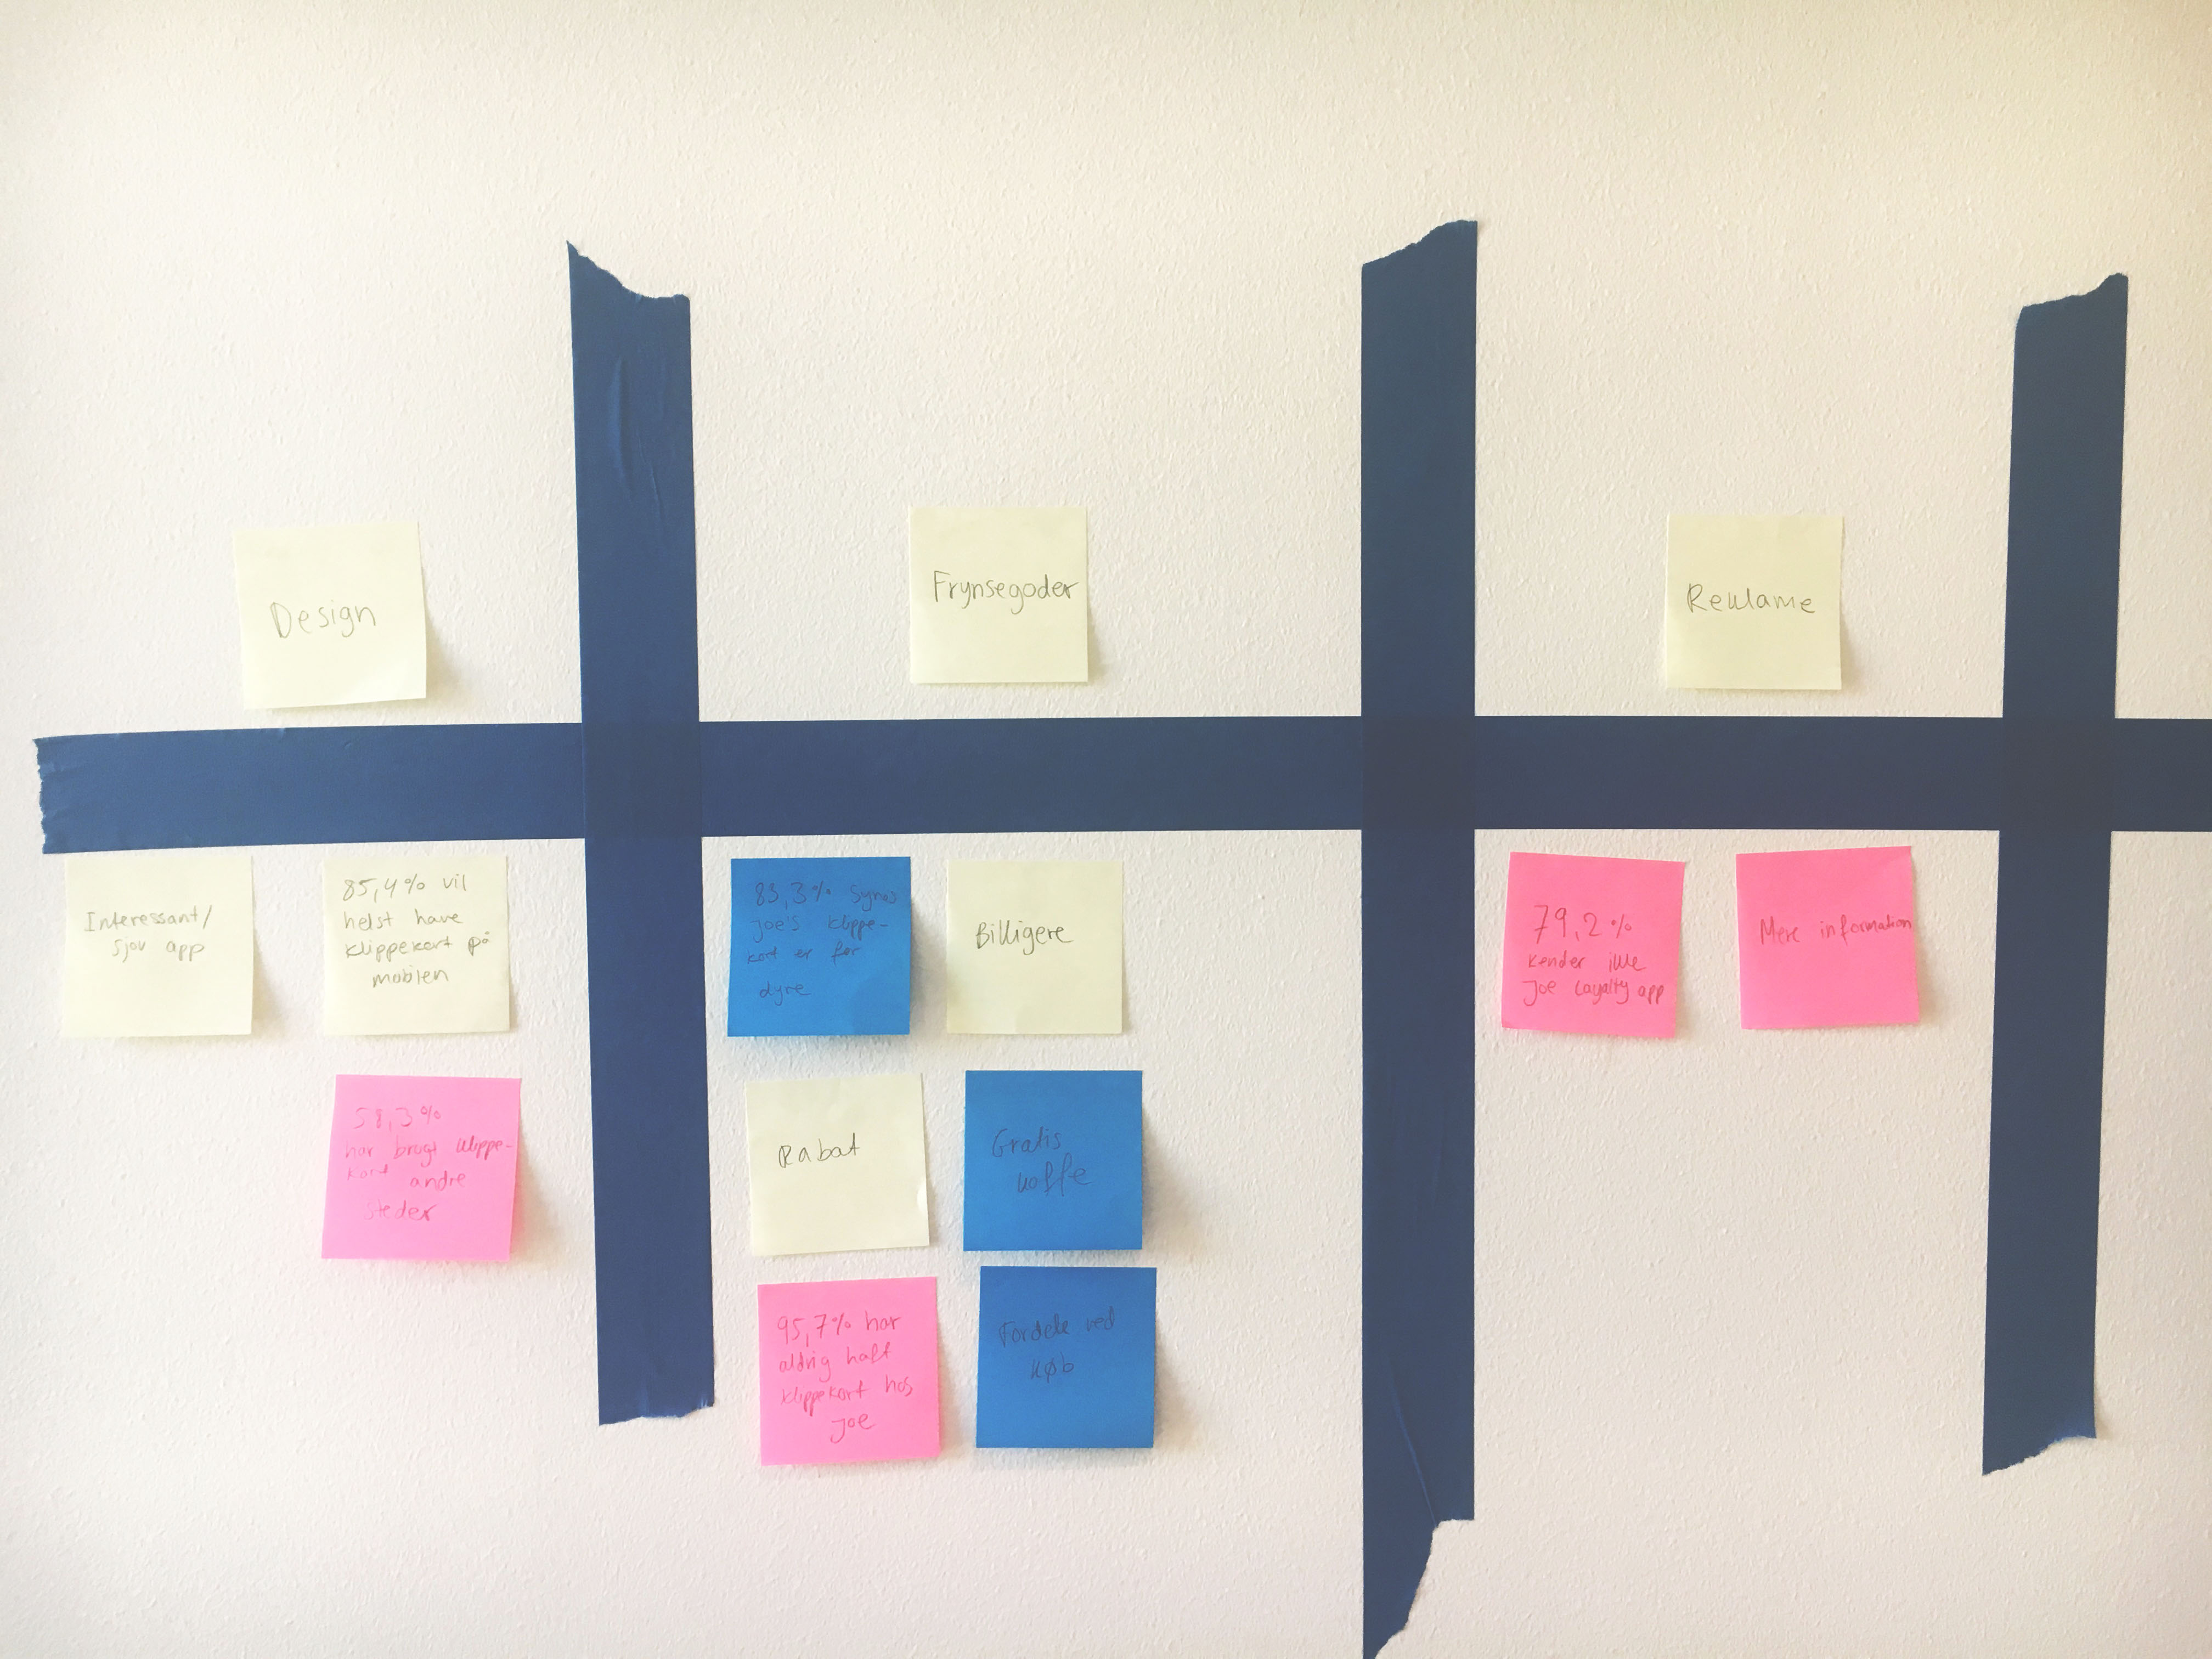 Design
Frynsegoder
Reklame
Interessant/
Sjov app
85,4% vil
helst have
klippekort på
mobilen
58,3%
har brugt klippe-
kort andre
steder
83,3% Synes
Joe's klippe-
kort er for
dyre
Billigere
Rabat
Gratis
kaffe
95,7% har
aldrig haft
klippekort hos
Joe
Fordele ved
køb
79,2%
Kender ikke
Joe Loyalty app
Mere information